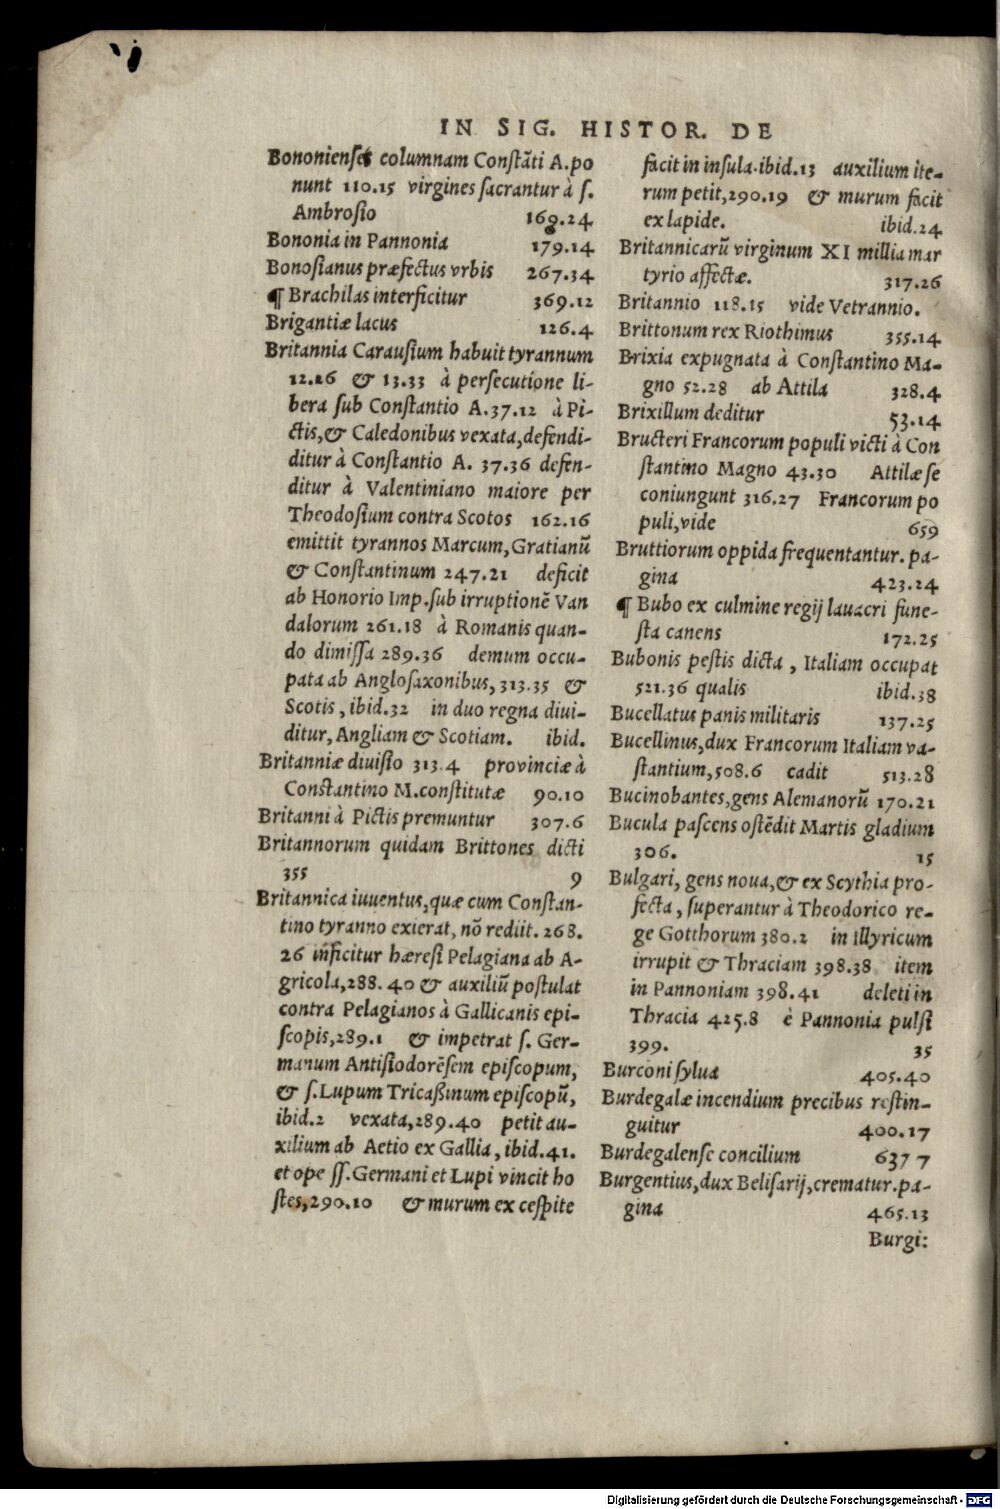 IN SIG. HISTOR. DE
Bononienses columnam Constāti A.po
nunt 110.15 virgines sacrantur à s.
Ambrosio 169.24
Bononia in Pannonia 179.14
Bonosianus præfectus vrbis 267.34
¶ Brachilas interficitur 369.12
Brigantiæ lacus 126.4
Britannia Carausium habuit tyrannum
12.26 & 13.33 à persecutione li-
bera sub Constantio A.37.12 à Pi-
ctis,& Caledonibus vexata,defendi-
ditur à Constantio A. 37.36 defen-
ditur à Valentiniano maiore per
Theodosium contra Scotos 162.16
emittit tyrannos Marcum,Gratianū
& Constantinum 247.21 deficit
ab Honorio Imp.sub irruptionē Van
dalorum 261.18 à Romanis quan-
do dimissa 289.36 demum occu-
pata ab Anglosaxonibus,313.35 &
Scotis,ibid.32 in duo regna diui-
ditur,Angliam & Scotiam. ibid.
Britanniæ diuisio 313.4 prouinciæ à
Constantino M.constitutæ 90.10
Britanni à Pictis premuntur 307.6
Britannorum quidam Brittones dicti
355 9
Britannica iuuentus,quæ cum Constan-
tino tyranno exierat, nō rediit. 268.
26 inficitur hæresi Pelagiana ab A-
gricola,288. 40 & auxiliū postulat
contra Pelagianos à Gallicanis epi-
scopis,289.1 & impetrat s. Ger-
manum Antisiodorēsem episcopum,
& s.Lupum Tricaßinum episcopū,
ibid.2 vexata,289.40 petit au-
xilium ab Aetio ex Gallia, ibid.41.
et ope ss.Germani et Lupi vincit ho
stes,290.10 & murum ex cespite
facit in insula.ibid.13 auxilium ite-
rum petit,290.19 & murum facit
ex lapide. ibid.24
Britannicarū virginum XI millia mar
tyrio affectæ. 317.26
Britannio 118.15 vide Vetrannio.
Brittonum rex Riothimus 355.14
Brixia expugnata à Constantino Ma-
gno 52.28 ab Attila 328.4
Brixillum deditur 53.14
Bructeri Francorum populi victi à Con
stantino Magno 43.30 Attilæ se
coniungunt 316.27 Francorum po
puli,vide 659
Bruttiorum oppida frequentantur. pa-
gina 423.24
¶ Bubo ex culmine regij lauacri fune-
sta canens 172.25
Bubonis pestis dicta , Italiam occupat
521.36 qualis ibid.38
Bucellatus panis militaris 137.25
Bucellinus,dux Francorum Italiam va-
stantium,508.6 cadit 513.28
Bucinobantes,gens Alemanorū 170.21
Bucula pascens ostēdit Martis gladium
306. 15
Bulgari, gens noua,& ex Scythia pro-
fecta , superantur à Theodorico re-
ge Gotthorum 380.2 in Illyricum
irrupit & Thraciam 398.38 item
in Pannoniam 398.41 deleti in
Thracia 425.8 è Pannonia pulsi
399. 35
Burconi sylua 405.40
Burdegalæ incendium precibus restin-
guitur 400.17
Burdegalense concilium 637 7
Burgentius,dux Belisarij,crematur.pa-
gina 465.13
Burgi:
Digitalisierung gefördert durch die Deutsche Forschungsgemeinschaft - DFG